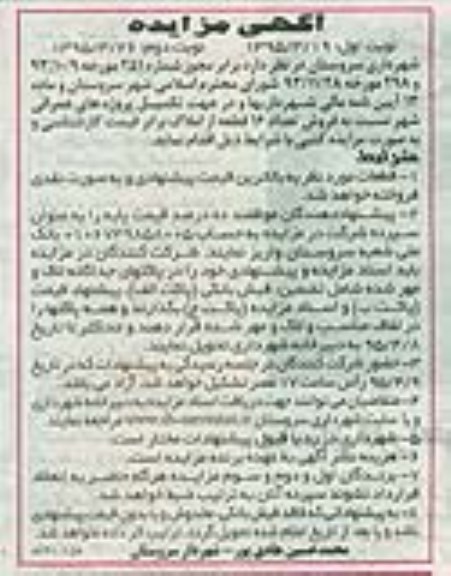 آگهی مزایده
نوبت اول: ۱۳۹۵/۲/۱۹ نوبت دوم: ۱۳۹۵/۲/۲۶
شهرداری سروستان در نظر دارد برابر مجوز شماره ۲۵۱ مورخه ۹۴/۱۰/۹
و ۲۹۸ مورخه ۹۴/۱۱/۲۸ شورای محترم اسلامی شهر سروستان و ماده
۱۳ آیین نامه مالی شهرداریها و در جهت تکمیل پروژه های عمرانی
شهر نسبت به فروش تعداد ۱۶ قطعه از املاک برابر قیمت کارشناسی و
به صورت مزایده کتبی با شرایط ذیل اقدام نماید.
شرایط:
۱- قطعات مورد نظر به بالاترین قیمت پیشنهادی و به صورت نقدی
فروخته خواهد شد.
۲- پیشنهاددهندگان موظفند ده درصد قیمت پایه را به عنوان
سپرده شرکت در مزایده به حساب بانک
ملی شعبه سروستان واریز نمایند. شرکت کنندگان در مزایده
باید اسناد مزایده و پیشنهادی خود را در پاکتهای جداگانه لاک و
مهر شده شامل تضمین، فیش بانکی (پاکت الف)، پیشنهاد قیمت
(پاکت ب) و اسناد مزایده (پاکت ج) بگذارند و همه پاکتها را
در لفاف مناسب و لاک و مهر شده قرار دهند و حداکثر تا تاریخ
۹۵/۳/۸ به دبیرخانه شهرداری تحویل نمایند.
۳- حضور شرکت کنندگان در جلسه رسیدگی به پیشنهادات که در تاریخ
۹۵/۳/۹ رأس ساعت ۱۷ عصر تشکیل خواهد شد، آزاد می باشد.
۴- متقاضیان می توانند جهت دریافت اسناد مزایده به دبیرخانه شهرداری
و یا سایت شهرداری سروستان مراجعه نمایند.
۵- شهرداری در رد یا قبول پیشنهادات مختار است.
۶- هزینه نشر آگهی به عهده برنده مزایده است.
۷- برندگان اول و دوم و سوم مزایده هرگاه حاضر به انعقاد
قرارداد نشوند سپرده آنان به ترتیب ضبط خواهد شد.
۸- به پیشنهاداتی که فاقد فیش بانکی، مخدوش و یا بدون قیمت پیشنهادی
باشد و یا بعد از تاریخ اعلام شده تحویل گردد، ترتیب اثر داده نخواهد شد.
محمدحسین هادی پور - شهردار سروستان